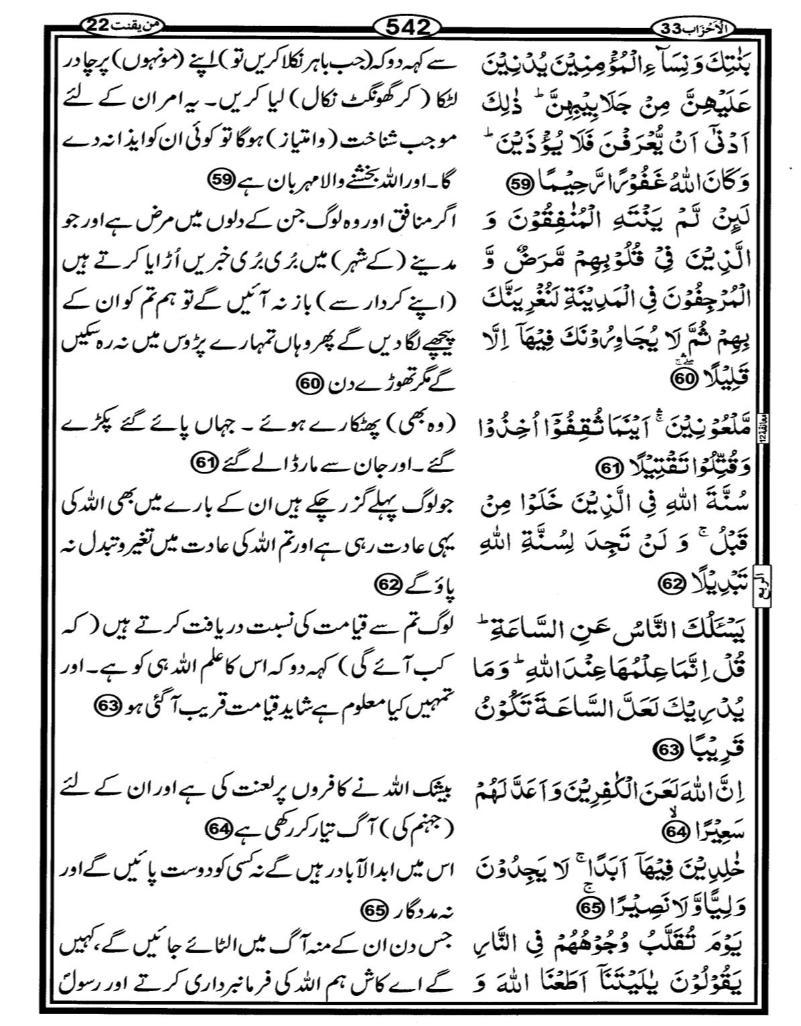 الْاَحْزَاب 33
542
من یقنت 22
بَنٰتِكَ وَنِسَآءِ الْمُؤْمِنِيْنَ يُدْنِيْنَ
عَلَيْهِنَّ مِنْ جَلَابِيْبِهِنَّ ؕ ذٰلِكَ
اَدْنٰۤى اَنْ يُّعْرَفْنَ فَلَا يُؤْذَيْنَ ؕ
وَكَانَ اللّٰهُ غَفُوْرًا رَّحِيْمًا 59
لَئِنْ لَّمْ يَنْتَهِ الْمُنٰفِقُوْنَ وَ
الَّذِيْنَ فِيْ قُلُوْبِهِمْ مَّرَضٌ وَّ
الْمُرْجِفُوْنَ فِي الْمَدِيْنَةِ لَنُغْرِيَنَّكَ
بِهِمْ ثُمَّ لَا يُجَاوِرُوْنَكَ فِيْهَاۤ اِلَّا
قَلِيْلًا 60
مَّلْعُوْنِيْنَ ۛۚ اَيْنَمَا ثُقِفُوْۤا اُخِذُوْا
وَقُتِّلُوْا تَقْتِيْلًا 61
سُنَّةَ اللّٰهِ فِي الَّذِيْنَ خَلَوْا مِنْ
قَبْلُ ۚ وَ لَنْ تَجِدَ لِسُنَّةِ اللّٰهِ
تَبْدِيْلًا 62
يَسْـَٔلُكَ النَّاسُ عَنِ السَّاعَةِ ؕ
قُلْ اِنَّمَا عِلْمُهَا عِنْدَ اللّٰهِ ؕ وَمَا
يُدْرِيْكَ لَعَلَّ السَّاعَةَ تَكُوْنُ
قَرِيْبًا 63
اِنَّ اللّٰهَ لَعَنَ الْكٰفِرِيْنَ وَاَعَدَّ لَهُمْ
سَعِيْرًا ۙ 64
خٰلِدِيْنَ فِيْهَاۤ اَبَدًا ۚ لَا يَجِدُوْنَ
وَلِيًّا وَّلَا نَصِيْرًا ۚ 65
يَوْمَ تُقَلَّبُ وُجُوْهُهُمْ فِي النَّارِ
يَقُوْلُوْنَ يٰلَيْتَنَاۤ اَطَعْنَا اللّٰهَ وَ
معانقة 12
الربع
سے کہہ دو کہ (جب باہر نکلا کریں تو) اپنے (مونہوں) پر چادر
لٹکا (کر گھونگٹ نکال) لیا کریں۔ یہ امر ان کے لئے
موجب شناخت (وامتیاز) ہوگا تو کوئی ان کو ایذا نہ دے
گا۔ اور اللہ بخشنے والا مہربان ہے 59
اگر منافق اور وہ لوگ جن کے دلوں میں مرض ہے اور جو
مدینے (کے شہر) میں بُری بُری خبریں اُڑایا کرتے ہیں
(اپنے کردار سے) باز نہ آئیں گے تو ہم تم کو ان کے
پیچھے لگا دیں گے پھر وہاں تمہارے پڑوس میں نہ رہ سکیں
گے مگر تھوڑے دن 60
(وہ بھی) پھٹکارے ہوئے ۔ جہاں پائے گئے پکڑے
گئے ۔ اور جان سے مار ڈالے گئے 61
جو لوگ پہلے گزر چکے ہیں ان کے بارے میں بھی اللہ کی
یہی عادت رہی ہے اور تم اللہ کی عادت میں تغیر و تبدل نہ
پاؤ گے 62
لوگ تم سے قیامت کی نسبت دریافت کرتے ہیں ( کہ
کب آئے گی) کہہ دو کہ اس کا علم اللہ ہی کو ہے ۔ اور
تمہیں کیا معلوم ہے شاید قیامت قریب آ گئی ہو 63
بیشک اللہ نے کافروں پر لعنت کی ہے اور ان کے لئے
(جہنم کی) آگ تیار کر رکھی ہے 64
اس میں ابدالآباد رہیں گے نہ کسی کو دوست پائیں گے اور
نہ مددگار 65
جس دن ان کے منہ آگ میں الٹائے جائیں گے، کہیں
گے اے کاش ہم اللہ کی فرمانبرداری کرتے اور رسولؐ